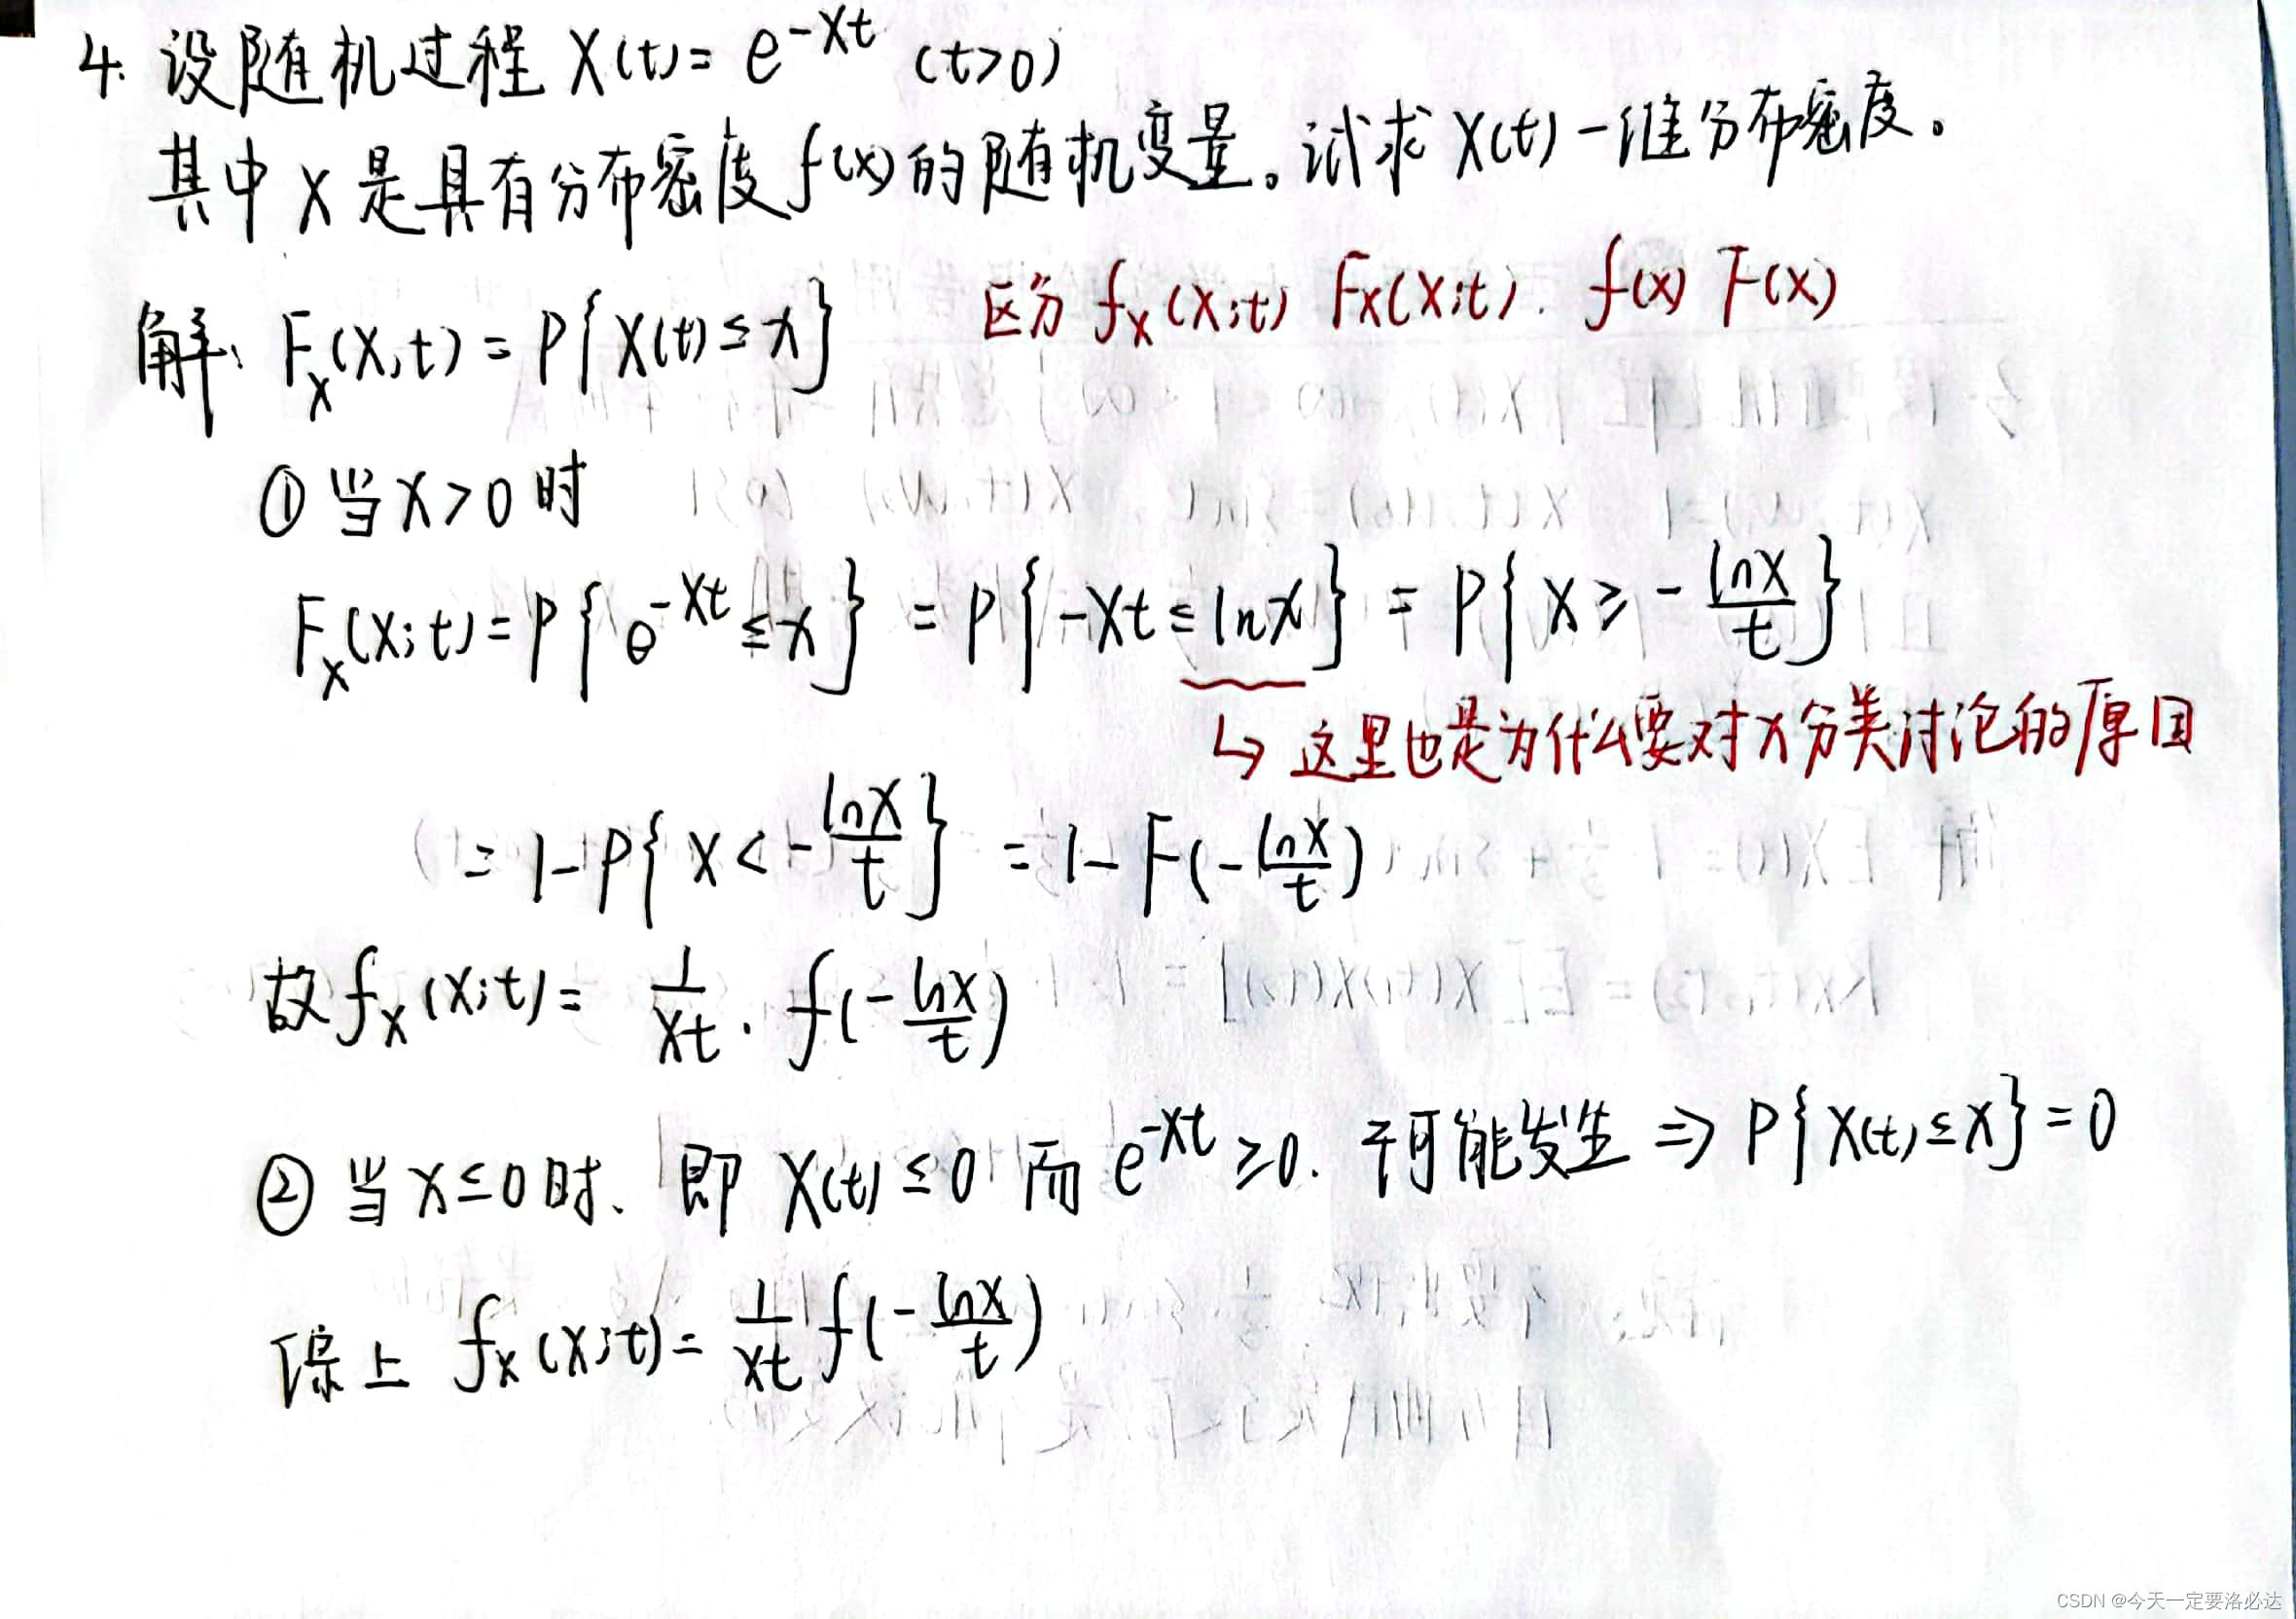 4. 设随机过程 X(t)= e^{-Xt} (t>0)
其中 X 是具有分布密度 f(x) 的随机变量。试求 X(t) 一维分布密度。
区分 f_X(x;t) F_X(x;t). f(x) F(x)
解、F_X(x,t) = P{X(t)≤x}
① 当 x>0 时
F_X(x;t)=P{e^{-Xt}≤x} = P{-Xt≤lnx} = P{X≥-\frac{lnx}{t}}
↳ 这里也是为什么要对x分类讨论的原因
= 1-P{X<-\frac{lnx}{t}} = 1-F(-\frac{lnx}{t})
故 f_X(x;t)= \frac{1}{xt}·f(-\frac{lnx}{t})
② 当 x≤0 时、即 X(t)≤0 而 e^{-Xt}≥0. 不可能发生 ⇒ P{X(t)≤x}=0
综上 f_X(x;t)= \frac{1}{xt} f(-\frac{lnx}{t})
CSDN @今天一定要洛必达